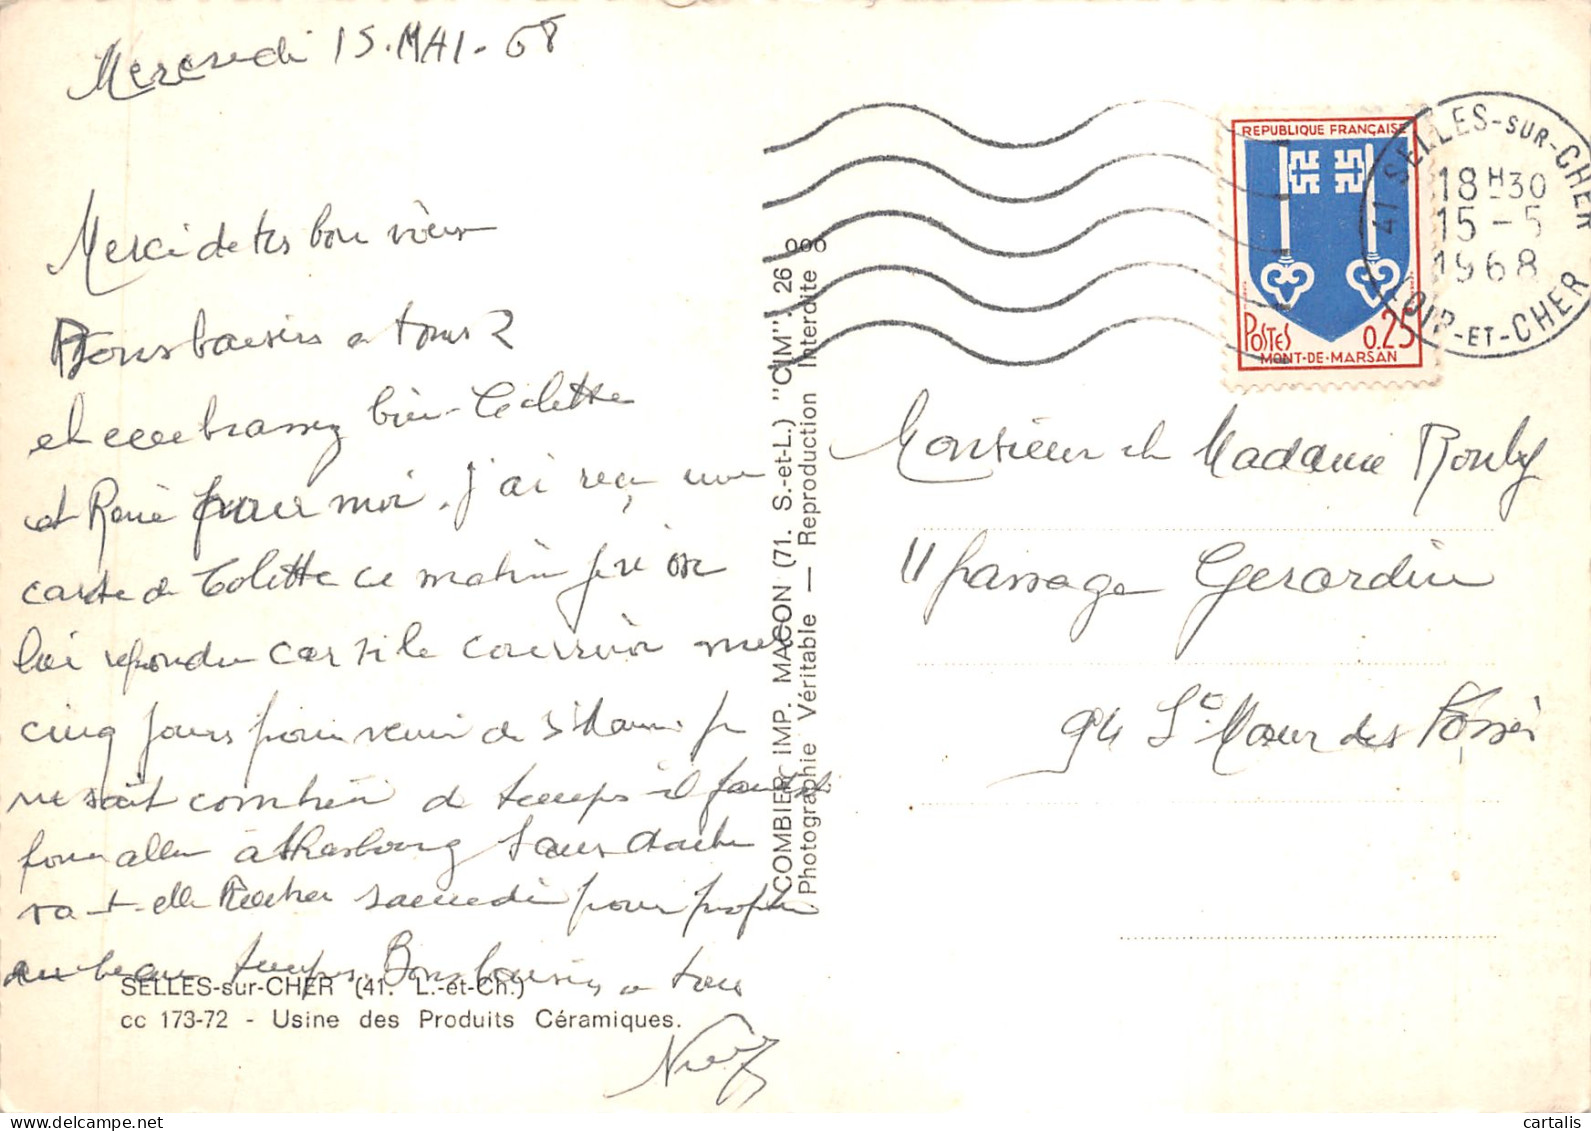 Mercredi 15. MAI - 68
Merci de tes bon vœux
Bons baisers a tous 2
et embrassez bien Colette
et René pour moi. J'ai reçu une
carte de Colette ce matin je vé
lui repondre car si le courrier met
cinq jours pour venir de St Maur je
ne sait combien de temps il faut
pour aller à Strasbourg
va-t-elle samedi pour profiter
au beau temps. Bons baisers a tous
SELLES-sur-CHER (41. L.-et-Ch.)
cc 173-72 - Usine des Produits Céramiques.
COMBIER IMP. MACON (71. S.-et-L.) "CIM" 26 000
Photographie Véritable — Reproduction Interdite
REPUBLIQUE FRANÇAISE
POSTES 0.25
MONT-DE-MARSAN
41 SELLES-SUR-CHER
18H30
15-5
1968
LOIR-ET-CHER
Monsieur et Madame Rouly
11 passage Gerardin
94 St. Maur des Fossés